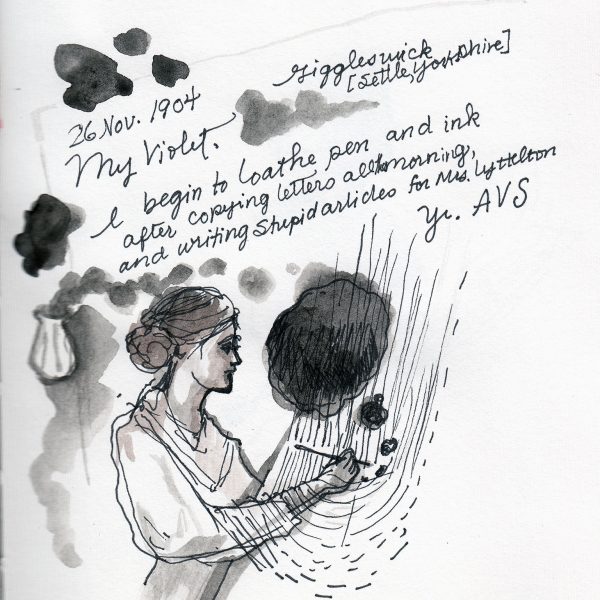 Giggleswick
[Settle, Yorkshire]
26 Nov. 1904
My Violet.
I begin to loathe pen and ink
after copying letters all morning,
and writing stupid articles for Mrs. Lyttelton
Yr. AVS